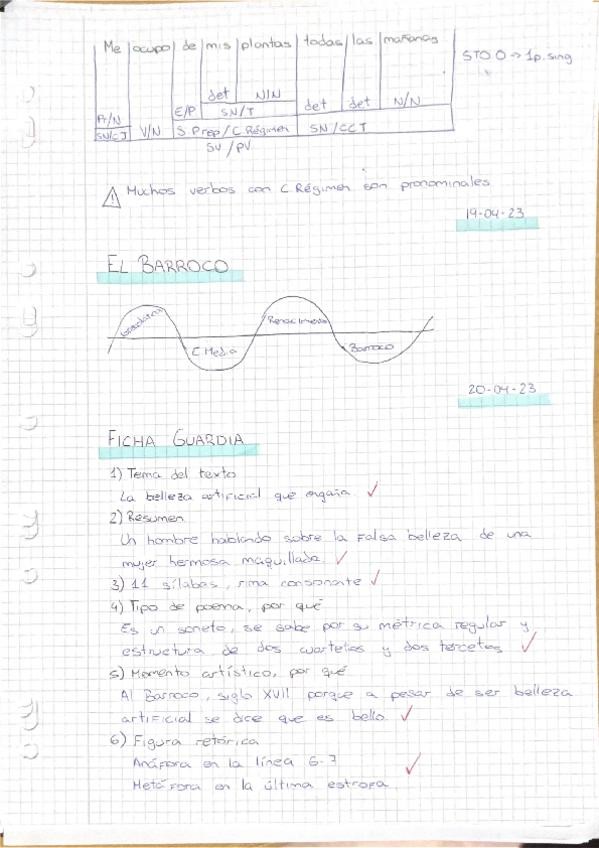 Me ocupo de mis plantas todas las mañanas
STO O → 1p. sing
det N/N
Pr/N E/P SN/T det det N/N
SN/CJ V/N S Prep/C Régimen SN/CCT
SV/PV
Muchos verbos con C Régimen son pronominales
19-04-23
EL BARROCO
Renacimiento
C Media Barroco
20-04-23
FICHA GUARDIA
1) Tema del texto
La belleza artificial que engaña
2) Resumen
Un hombre hablando sobre la falsa belleza de una
mujer hermosa maquillada.
3) 11 sílabas, rima consonante
4) Tipo de poema, por qué
Es un soneto, se sabe por su métrica regular y
estructura de dos cuartetos y dos tercetos
5) Momento artístico, por qué
Al Barroco, siglo XVII porque a pesar de ser belleza
artificial se dice que es bello.
6) Figura retórica
Anáfora en la línea 6-7
Metáfora en la última estrofa.